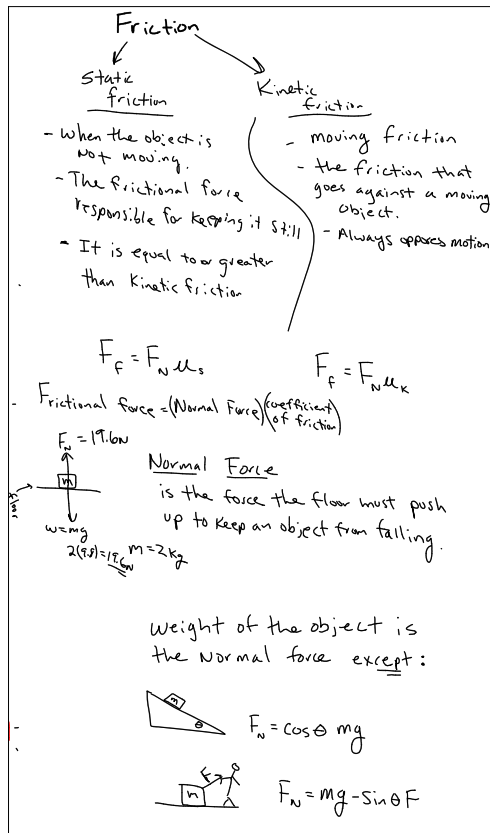 Friction
Static
friction
- When the object is
Not moving.
- The frictional force
responsible for keeping it still
- It is equal to or greater
than Kinetic friction
Kinetic
friction
- moving friction
- the friction that
goes against a moving
object.
- Always opposes motion
F_f = F_N μ_s
F_f = F_N μ_K
Frictional force = (Normal Force)(coefficient of friction)
F_N = 19.6N
m
floor
w=mg
2(9.8)=19.6N
m=2kg
Normal Force
is the force the floor must push
up to keep an object from falling.
Weight of the object is
the Normal force except:
m
θ
F_N = cosθ mg
F
m
F_N = mg - sinθF